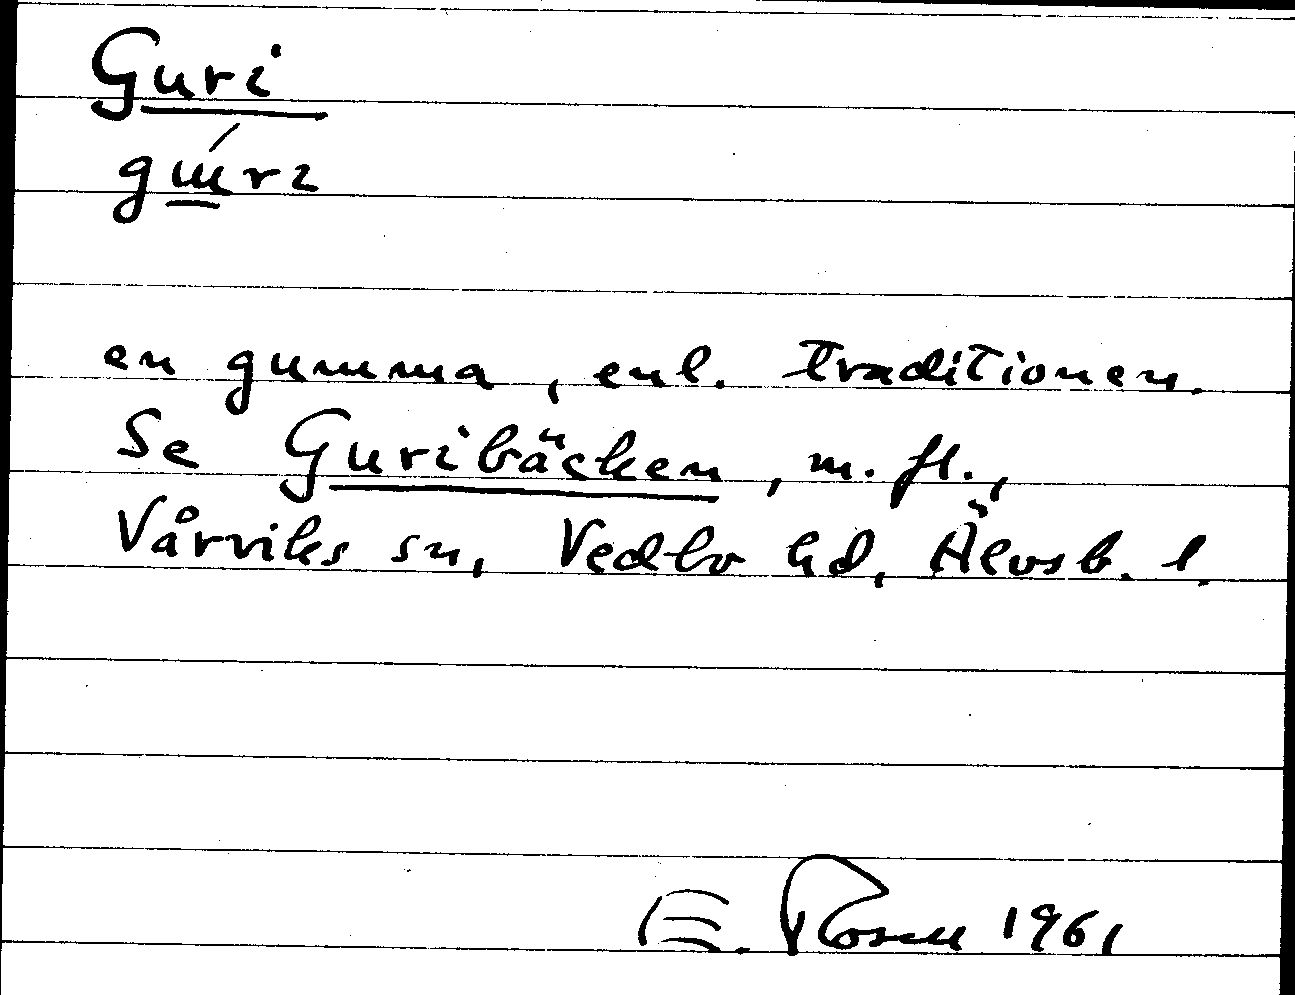 Guri
en gumma, enl. traditionen.
Se Guribäcken, m. fl.,
Vårviks sn, Vedbo hd, Älvsb. l.
E. Rosell 1961